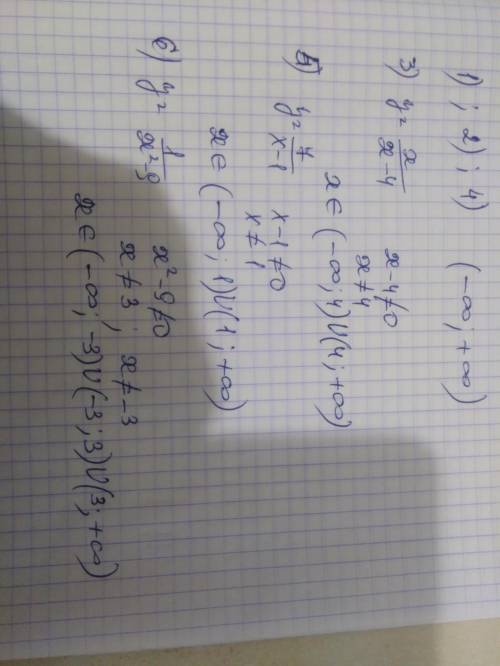 1) ; 2) ; 4) (-∞; +∞)
3) y = x/(x-4) x-4≠0
x≠4
x ∈ (-∞; 4)U(4; +∞)
5) y = 4/(x-1) x-1≠0
x≠1
x ∈ (-∞; 1)U(1; +∞)
6) y = 1/(x²-9) x²-9≠0
x≠3; x≠-3
x ∈ (-∞; -3)U(-3; 3)U(3; +∞)